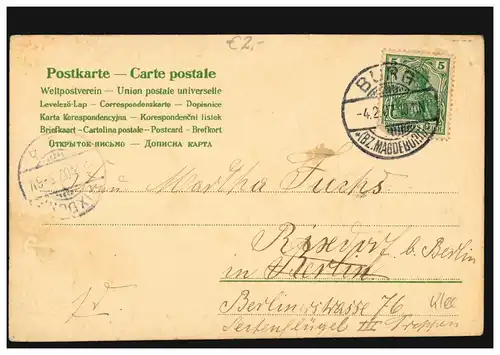 €2,-
Postkarte — Carte postale
Weltpostverein — Union postale universelle
Levelező-Lap — Correspondenzkarte — Dopisnice
Karta Korespondencyjna — Korespondenční lístek
Briefkaart — Cartolina postale — Postcard — Brefkort
Открытое письмо — Дописна карта
5 5
BURG
-4.2
(BZ. MAGDEBURG)
Frau Martha Fuchs
Rixdorf b. Berlin
in Berlin
Berlinerstrasse 76
Seitenflügel III Treppen
fr.